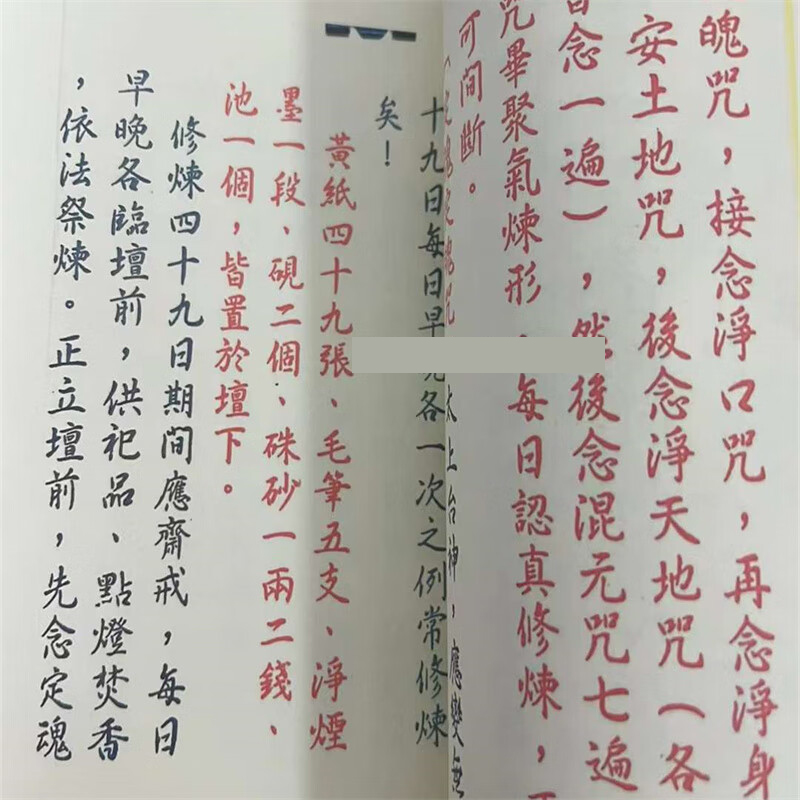 魄咒，接念淨口咒，再念淨身
安土地咒，後念淨天地咒（各
念一遍），然後念混元咒七遍
咒畢聚氣煉形，每日認真修煉，
可間斷。
太上台神，應變無
十九日每日早晚各一次之例常修煉
矣！
黃紙四十九張、毛筆五支、淨煙
墨一段、硯二個、硃砂一兩二錢、
池一個，皆置於壇下。
修煉四十九日期間應齋戒，每日
早晚各臨壇前，供祀品、點燈焚香
，依法祭煉。正立壇前，先念定魂